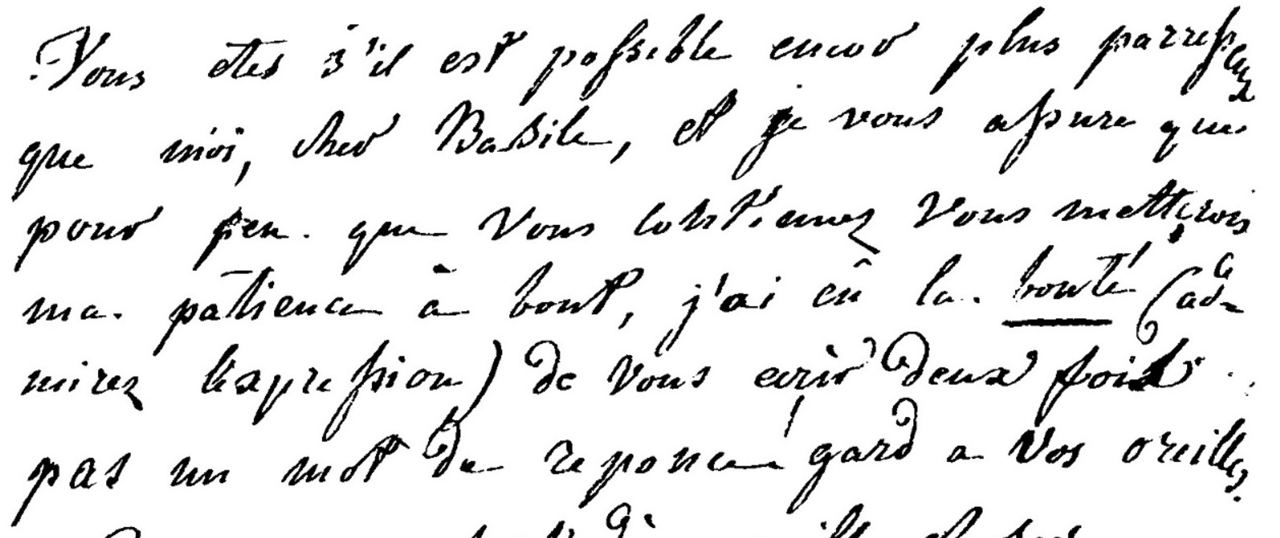 Vous etes s'il est possible encor plus parresseux
que moi, cher Basile, et je vous assure que
pour peu que vous continuez vous metterois
ma patience à bout, j'ai eû la bonté (ad-
mirez l'expression) de vous ecrir deux fois
pas un mot de reponce! gard a vos oreilles.